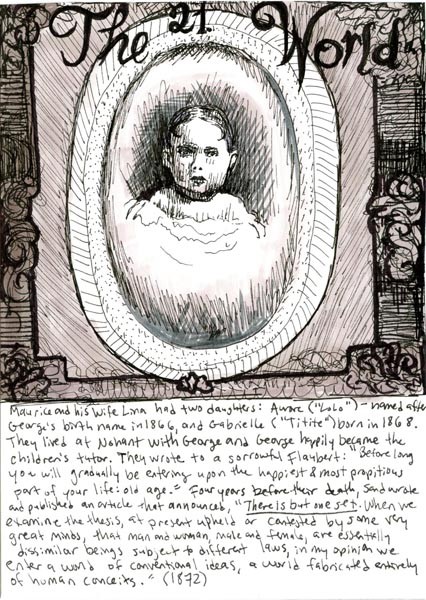 The 21. World
Maurice and his wife Lina had two daughters: Aurore ("Lolo") - named after
George's birth name in 1866, and Gabrielle ("Titite") born in 1868.
They lived at Nohant with George and George happily became the
children's tutor. They wrote to a sorrowful Flaubert: "Before long
you will gradually be entering upon the happiest & most propitious
part of your life: old age." Four years before their death, Sand wrote
and published an article that announced, "There is but one sex. When we
examine the thesis, at present upheld or contested by some very
great minds, that man and woman, male and female, are essentially
dissimilar beings subject to different laws, in my opinion we
enter a world of conventional ideas, a world fabricated entirely
of human conceits." (1872)